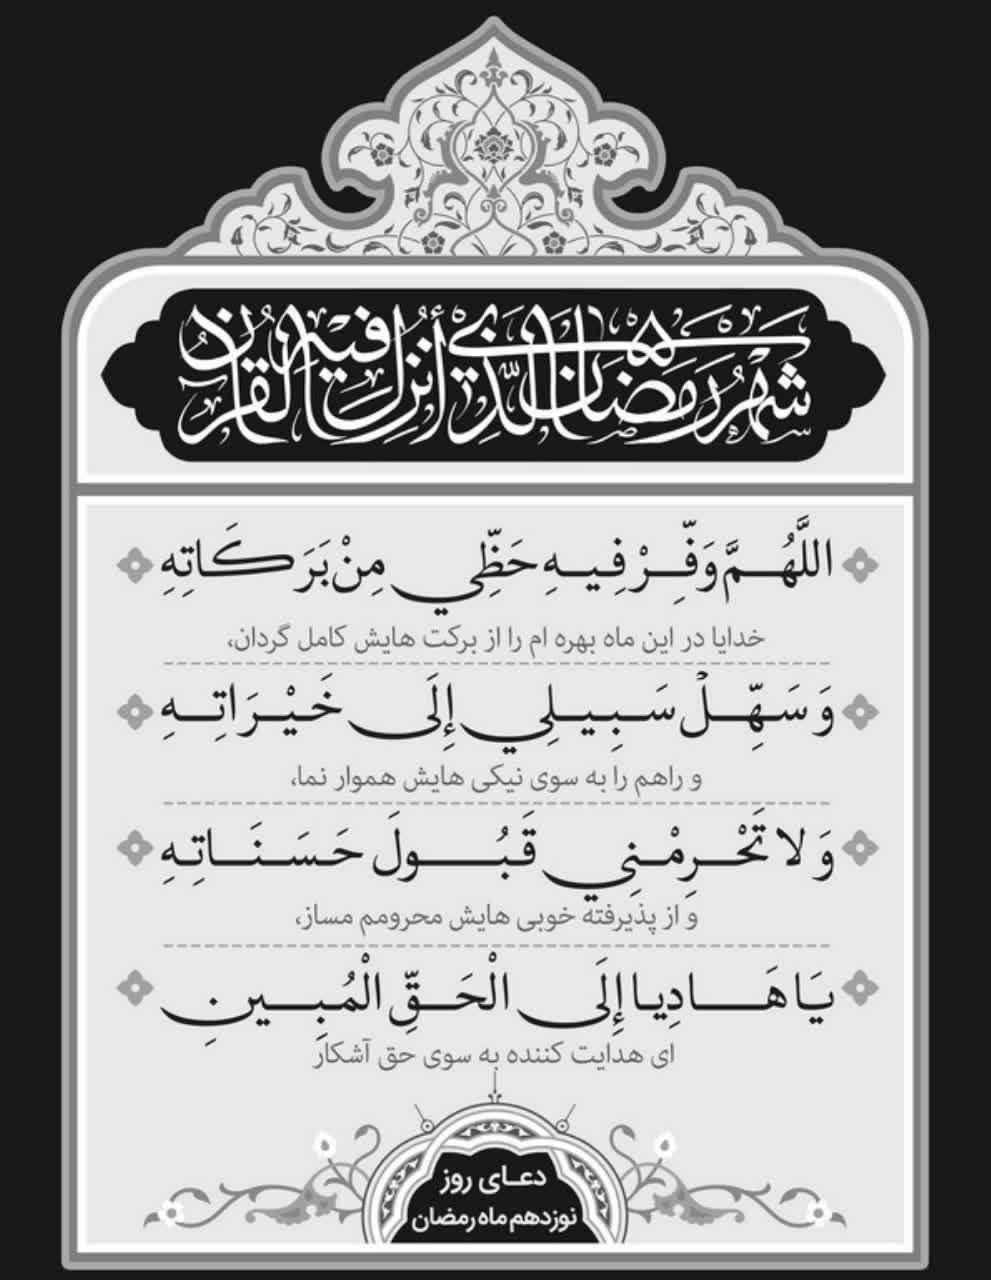 شهر رمضان الذي أنزل فيه القرآن
اللَّهُمَّ وَفِّرْ فِيهِ حَظِّي مِنْ بَرَكَاتِهِ
خدایا در این ماه بهره ام را از برکت هایش کامل گردان،
وَ سَهِّلْ سَبِيلِي إِلَى خَيْرَاتِهِ
و راهم را به سوی نیکی هایش هموار نما،
وَ لا تَحْرِمْنِي قَبُولَ حَسَنَاتِهِ
و از پذیرفته خوبی هایش محرومم مساز،
يَا هَادِيا إِلَى الْحَقِّ الْمُبِينِ
ای هدایت کننده به سوی حق آشکار
دعای روز
نوزدهم ماه رمضان